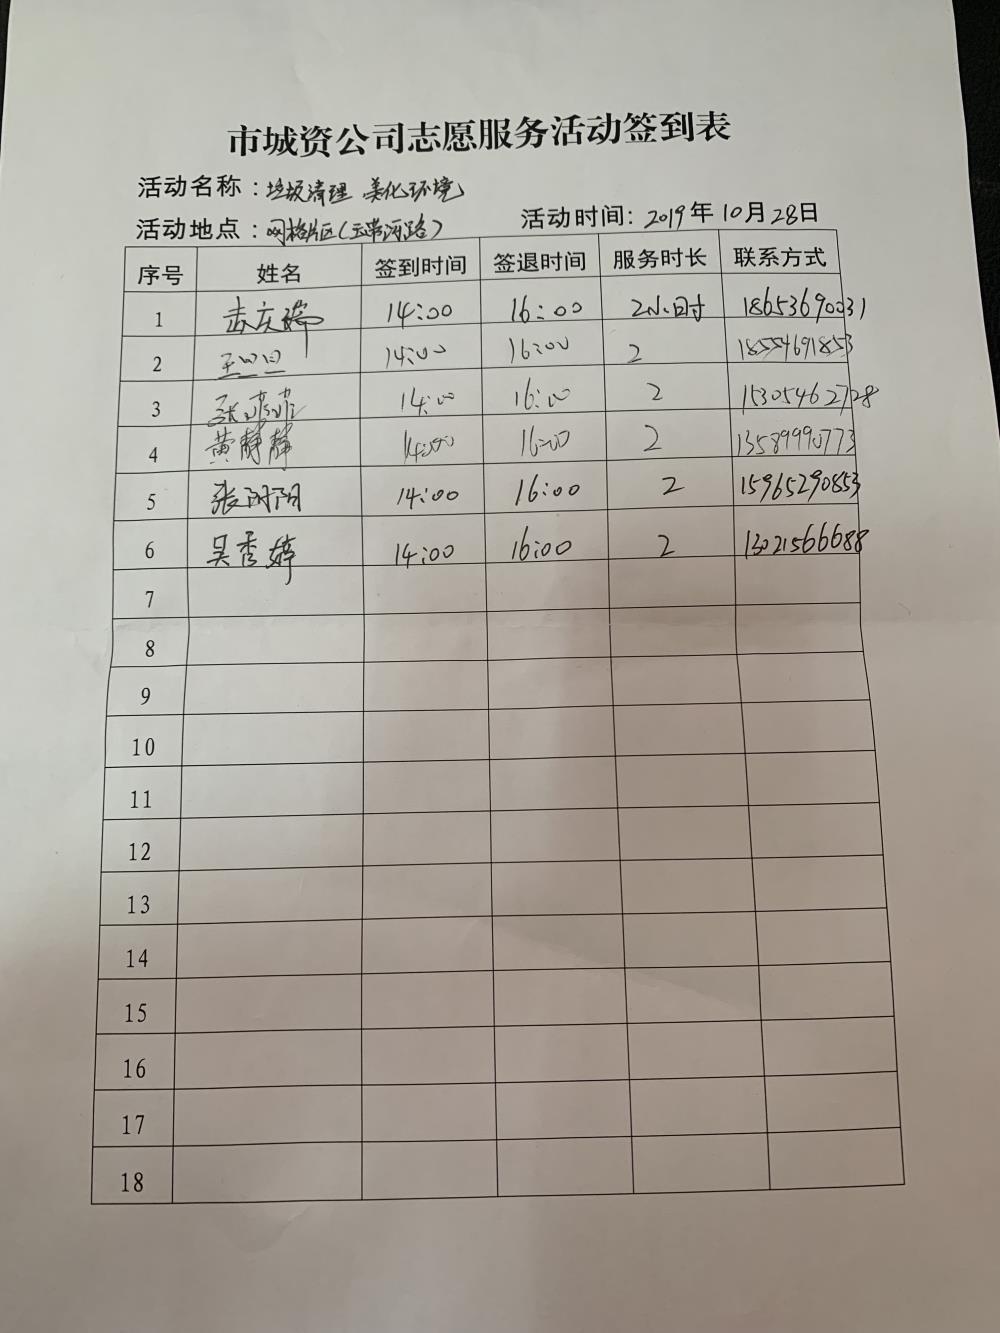 市城资公司志愿服务活动签到表
活动名称：垃圾清理 美化环境
活动地点：网格片区（玉带河路） 活动时间：2019年10月28日
序号 姓名 签到时间 签退时间 服务时长 联系方式
1 14:00 16:00 2小时 18653690031
2 14:00 16:00 2 18554691853
3 张菲菲 14:00 16:00 2 15305462728
4 黄静静 14:00 16:00 2 13589990773
5 张阳阳 14:00 16:00 2 15965290853
6 吴秀婷 14:00 16:00 2 13021566688
7
8
9
10
11
12
13
14
15
16
17
18